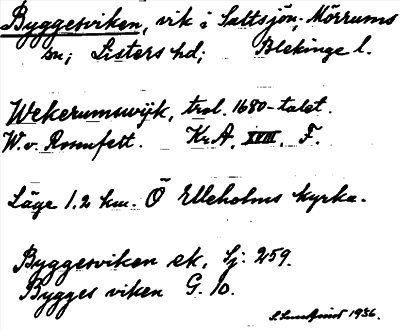 Byggesviken, vik i Saltsjön, Mörrums
sn; Listers hd; Blekinge l.
Wekerumswijk, trol. 1680-talet.
W. v. Rosenfelt. Kr.A. XVIII. F.
Läge 1.2 km. Ö Elleholms kyrka.
Byggesviken ek. Sj: 259.
Bygges viken G. 10.
1936.